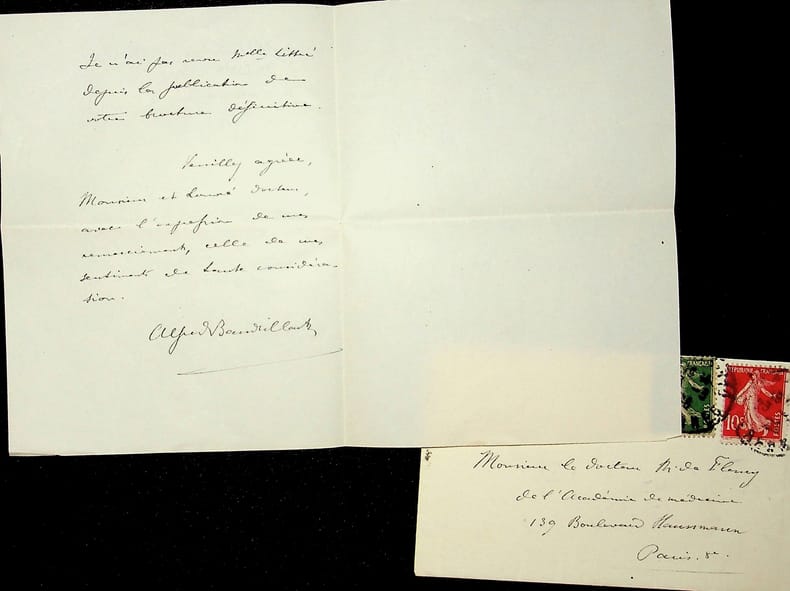 Je n'ai pas revu Melle Littré
depuis la publication de
votre brochure définitive.
Veuillez agréer,
Monsieur et honoré docteur,
avec l'expression de mes
remerciements, celle de mes
sentiments de haute considéra-
tion.
Alfred Baudrillart
RÉPUBLIQUE FRANÇAISE
10c
POSTES
Monsieur le docteur M. de Fleury
de l'Académie de médecine
139 Boulevard Haussmann
Paris. 8e.